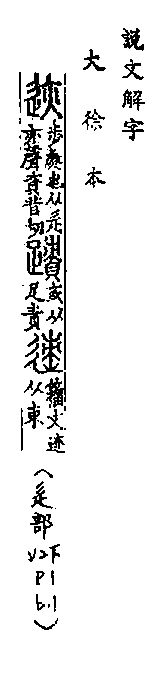 說文解字
大徐本
步處也从辵
或从
亦聲資昔切
足責
籒文迹
从朿
(辵部
V2下
P1
b.1)